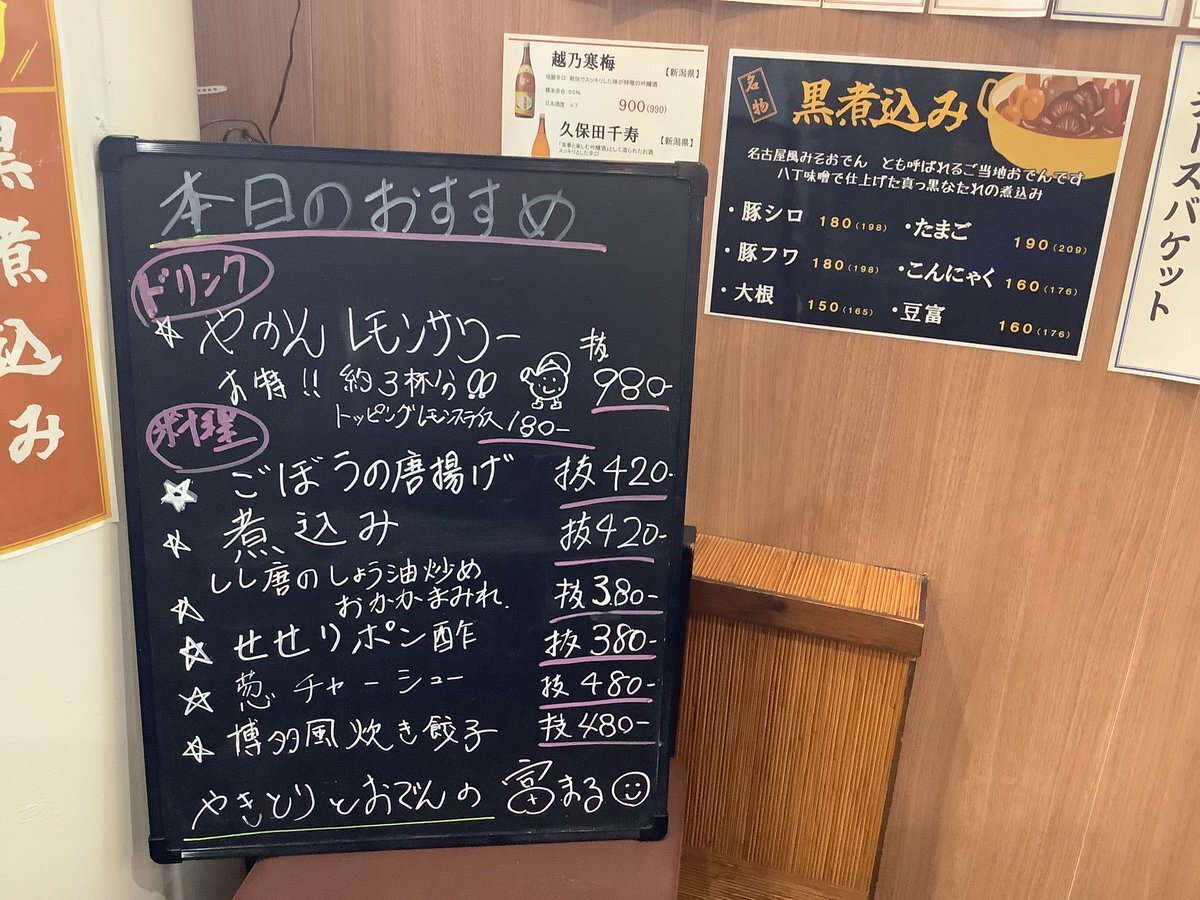 本日のおすすめ
ドリンク
☆ やかんレモンサワー
お特!! 約3杯分!! 抜 980-
トッピングレモンスライス 180-
料理
☆ ごぼうの唐揚げ 抜420-
☆ 煮込み 抜420-
☆ しし唐のしょう油炒め
おかかまみれ 抜380-
☆ せせりポン酢 抜380-
☆ 葱チャーシュー 抜480-
☆ 博多風炊き餃子 抜480-
やきとりとおでんの 富まる
越乃寒梅 【新潟県】
端麗辛口 軽快でスッキリした味が特徴の吟醸酒
精米歩合:55%
日本酒度:+7 900(990)
久保田千寿 【新潟県】
「食事と楽しむ吟醸酒」として造られたお酒
スッキリとした辛口
名物
黒煮込み
名古屋風みそおでん とも呼ばれるご当地おでんです
八丁味噌で仕上げた真っ黒なたれの煮込み
・豚シロ 180(198) ・たまご 190(209)
・豚フワ 180(198) ・こんにゃく 160(176)
・大根 150(165) ・豆富 160(176)
黒煮込み
スバケット